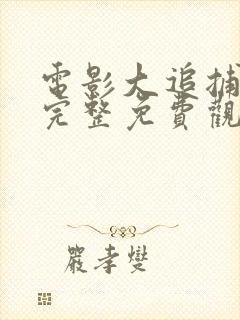 電影大追捕
完整免費觀
嚴孝燮